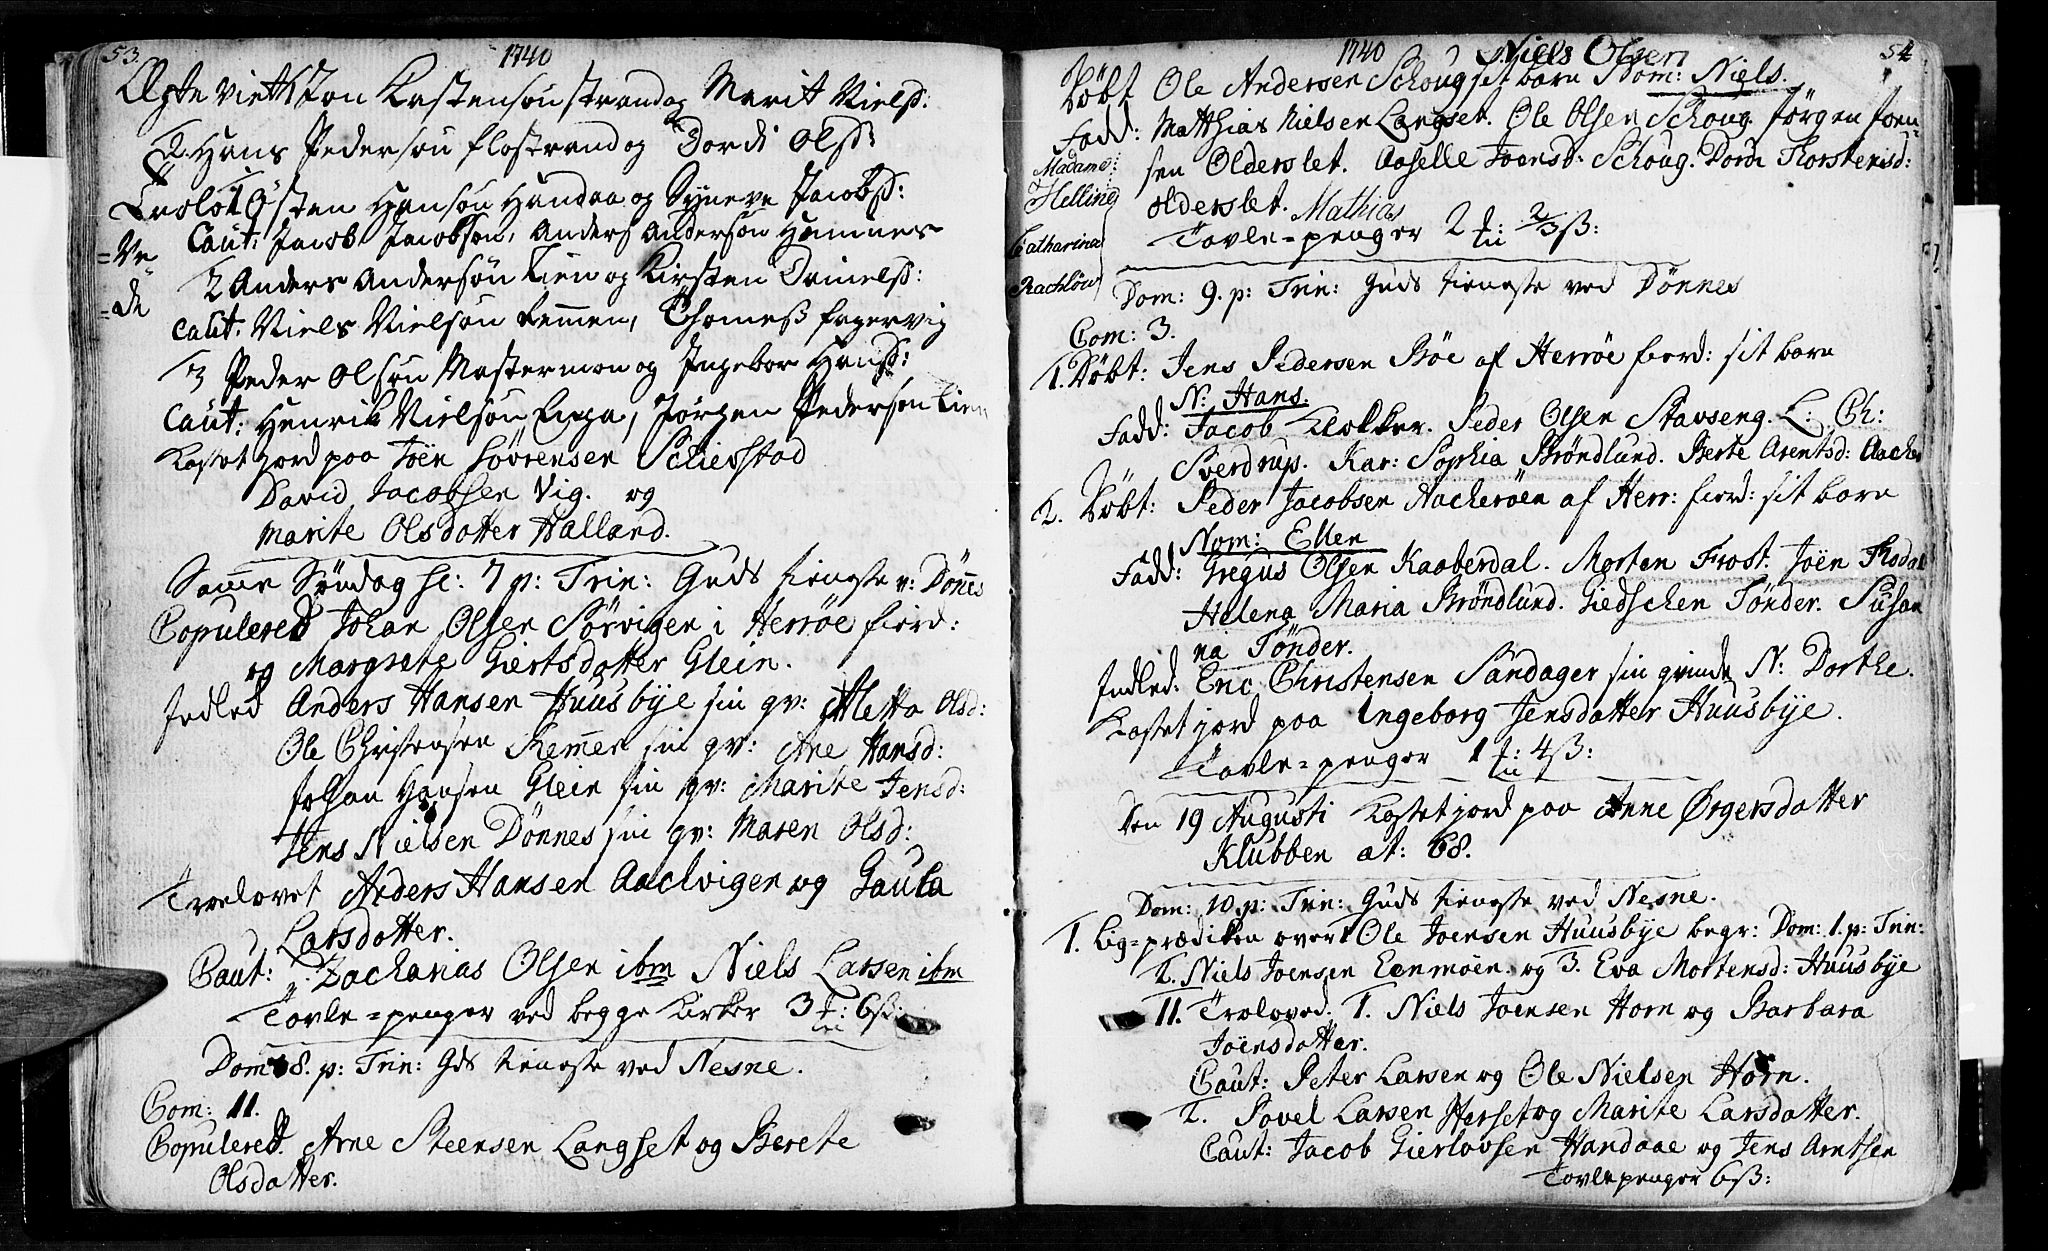 53.
1740
Ægte viet Iston Karstensøn strand og Marit Niels:
2. Hans Pedersøn flostrand og Dordi Ols:
Trolov. 1 Østen Hansøn Handaa og Synneve Jacobs:
Caut: Jacob Jacobsøn, Anders Andersøn Hamnes
=Ve
=de
2 Anders Andersøn Lien og Kirsten Daniels:
Caut: Niels Nielsøn Remmen, Thomes fagervig
3 Peder Olsøn Mastermon og Ingebor Hans:
Caut: Henrik Nielsøn Enga, Jørgen Pedersøn Lien
Kastet jord paa Joen Sørensen Schiefstad
David Jacobsen Vig. og
Marite Olsdatter Halland.
Samme Søndag sc: 7 p: Trin: Guds tieneste v: Dönnes
Copulered Johan Olsen Sörvigen i Herröe fiord:
og Margrete Giertsdatter Glein.
Indled Anders Hansen Huusbye sin qv: Aletta Olsd:
Ole Christensen Remmen sin qv: Ane Hansd:
Johan Hansen Glein sin qv: Marite Jensd:
Jens Nielsen Dönnes sin qv: Maren Olsd:
Troelovet Anders Hansen Aaelvigen og Gaula
Larsdatter.
Caut: Zacharias Olsen ibm Niels Larsen ibm
Tavle=penger ved begge Kirker 3 : 6ß:
Dom 8. p: Trin: Gds tieneste ved Nesne.
Com: 11.
Copulered. Arne Steensen Langset og Berete
Olsdatter.
1740
Niels Olsen
54
Döbt Ole Andersen Schoug sit barn Nom: Niels.
Fadd: Matthias Nielsen Langset. Ole Olsen Schoug. Jörgen Joen=
sen Olderslet. Aaselle Joensd: Schoug. Dordi Thorstensd:
olderslet. Mathias
Madame
Helling
Catharina
Rachlöw
Tavle=penger 2 : 2/3ß:
Dom: 9. p: Trin: Guds tieneste ved Dönnes
Com: 3.
1. Döbt: Jens Pedersen Böe af Herröe fiord: sit barn
N: Hans.
Fadd: Jacob Klokker. Peder Olsen Stavseng. L: Ch:
Sverdrup. Kar: Sophia Bröndlund. Berte Arentsd: Aacher
2. Döbt: Peder Jacobsen Aacheröen af Herr: fiord: sit barn
Nom: Ellen
Fadd: Gregus Olsen Kaaberdal. Morten Frost. Joën
Helena Maria Bröndlund. Giedschen Tönder. Susan
na Tönder.
Indled: Eric Christensen Sandager sin qvinde N: Dorthe.
Kastet jord paa Ingeborg Jensdatter Huusbye.
Tavle=penger 1 : 4ß:
Den 19 Augusti Kastet jord paa Anne Örgersdatter
Klubben æt: 68.
Dom: 10 p: Trin: Guds tieneste ved Nesne.
1. Lig=prædiken over 1 Ole Joensen Huusbye begr: Dom: 1. p: Trin:
2. Niels Joensen Eenmöen. og 3. Eva Mortensd: Huusbye
11. Troloved. 1. Niels Joensen Horn og Barbara
Joënsdatter.
Caut: Peter Larsen og Ole Nielsen Horn.
2. Povel Larsen Herset og Marite Larsdatter.
Caut: Jacob Gierlovsen Handaae og Jens Arntsen
Tavlepenger 6ß: